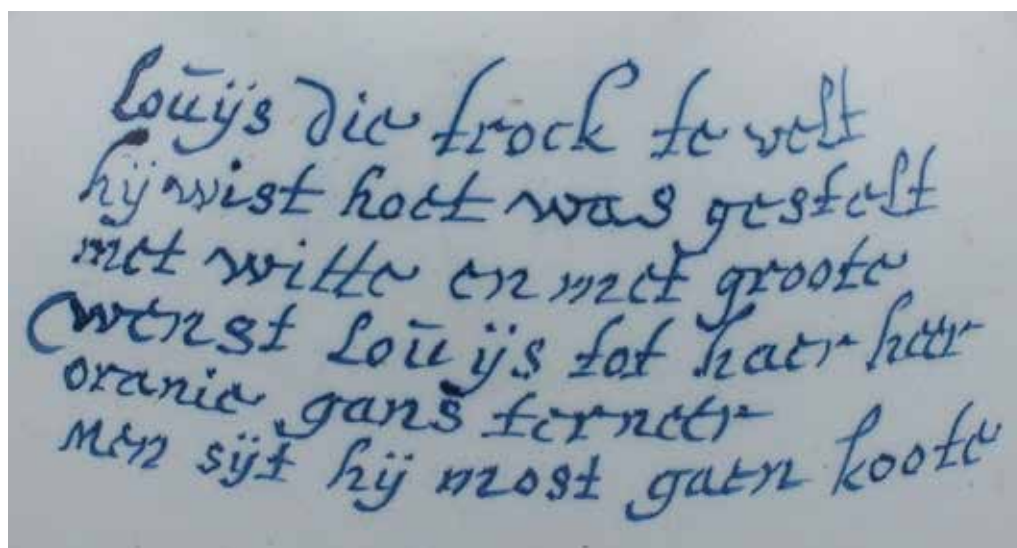 loūÿs die trock te velt
hÿ wist hoet was gestelt
met witte en met groote
wenst loūÿs tot haer heer
oranie gans terneer
men sÿt hÿ most gaen koote